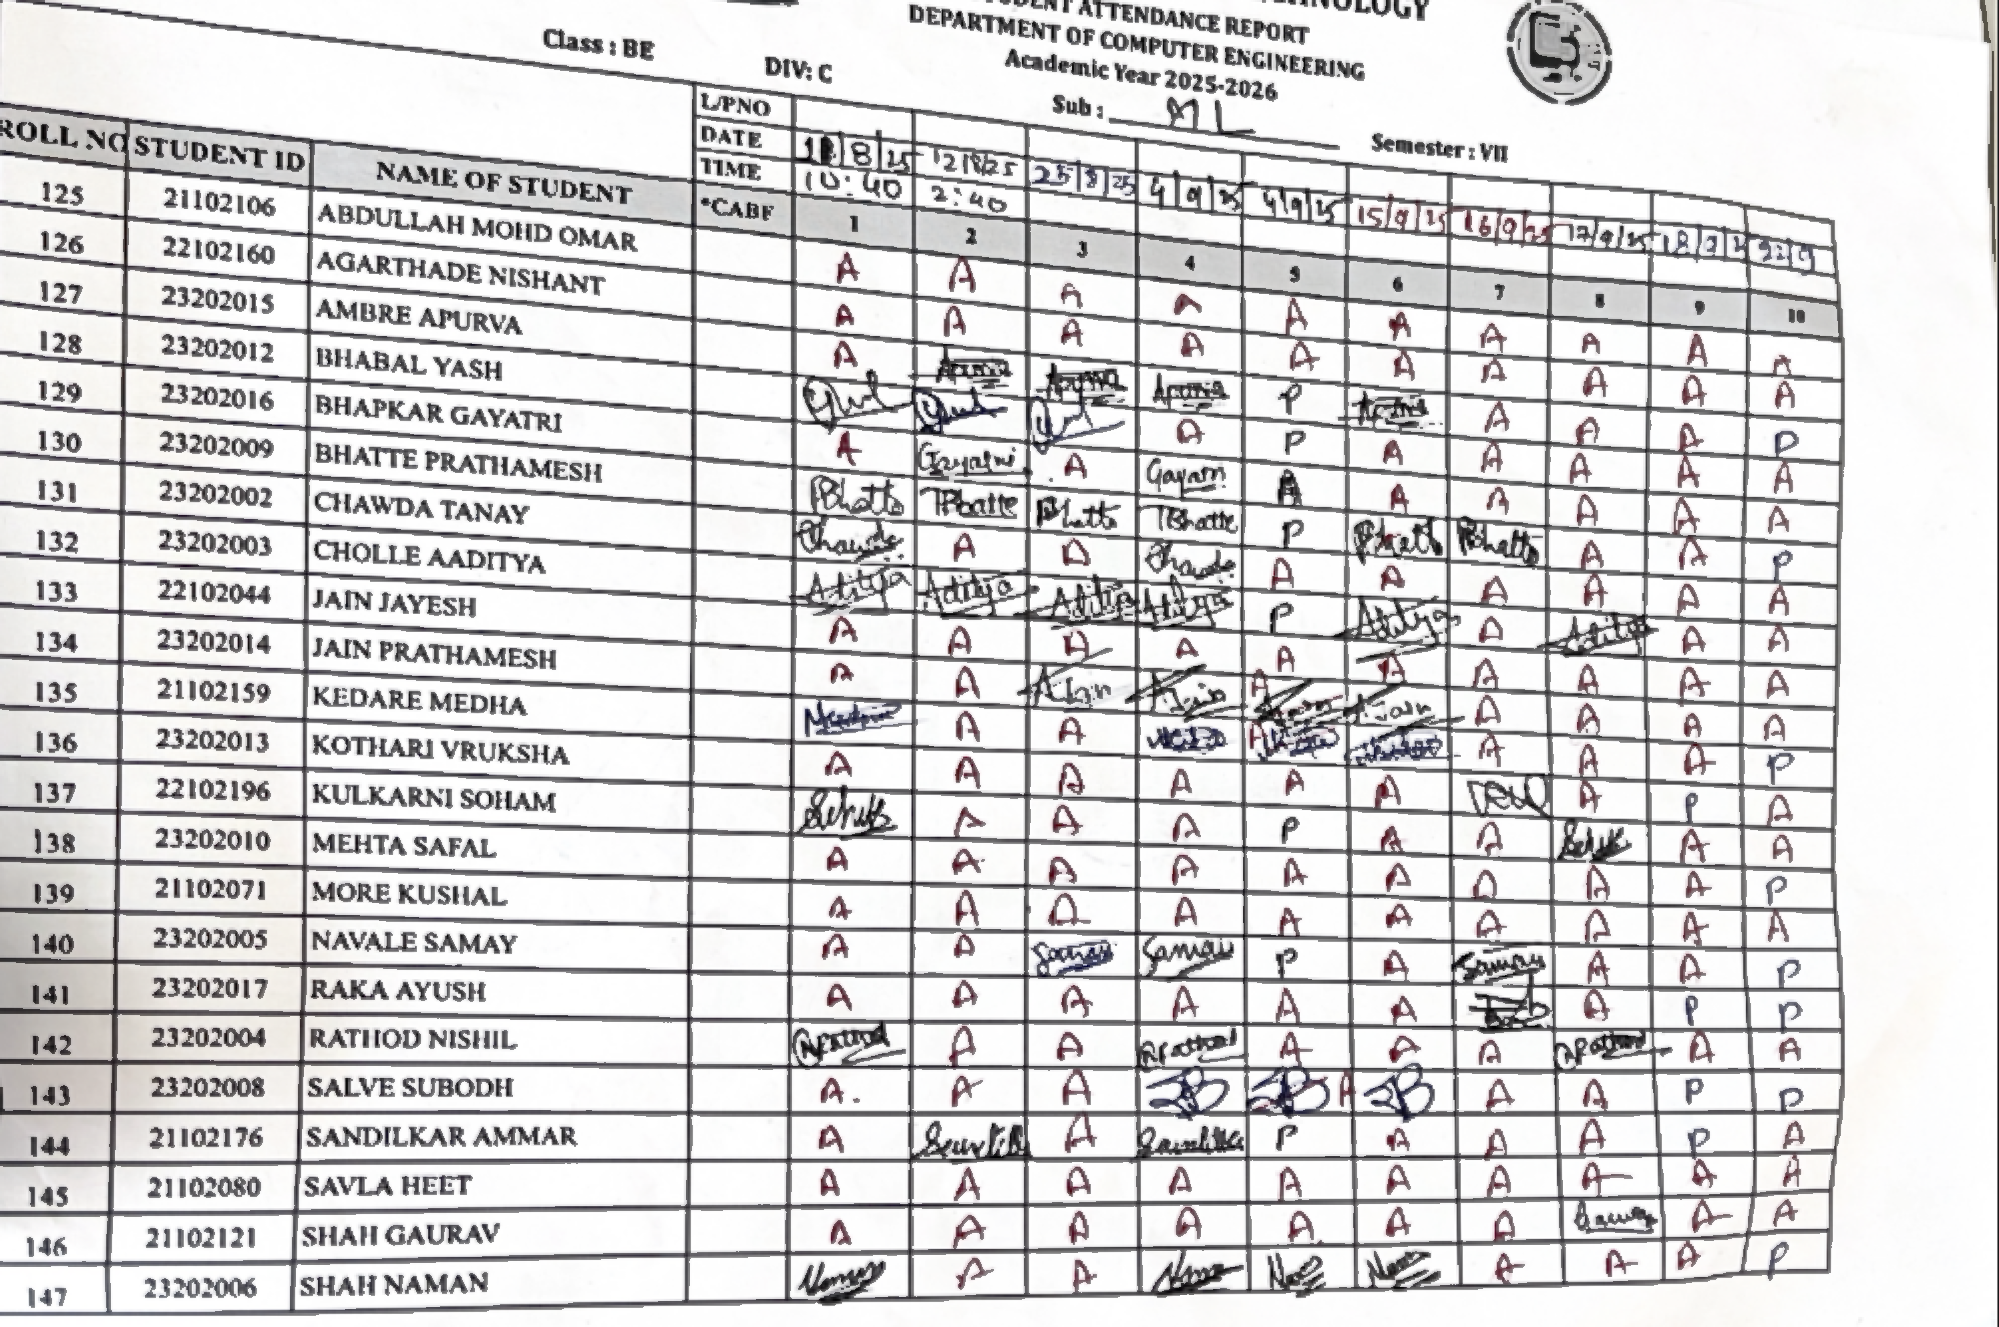 NOLOGY
STUDENT ATTENDANCE REPORT
DEPARTMENT OF COMPUTER ENGINEERING
Academic Year 2025-2026
Class : BE DIV: C Sub : ML Semester : VII
L/PNO
DATE 11/8/25 12/8/25 25/8/25 4/9/25 4/9/25 15/9/25 16/9/25 17/9/25 18/9/2 22/9
TIME 10:40 2:40
ROLL NO STUDENT ID NAME OF STUDENT *CABF 1 2 3 4 5 6 7 8 9 10
125 21102106 ABDULLAH MOHD OMAR A A A A A A A A A A
126 22102160 AGARTHADE NISHANT A A A A A A A A A A
127 23202015 AMBRE APURVA A Apurva Apurva Apurva P Apurva A A A P
128 23202012 BHABAL YASH A P A A A A A
129 23202016 BHAPKAR GAYATRI A Gayatri A Gayatri A A A A A A
130 23202009 BHATTE PRATHAMESH PBhatte PBhatte PBhatte PBhatte P PBhatte PBhatte A A P
131 23202002 CHAWDA TANAY Chawda A A Chawda A A A A A A
132 23202003 CHOLLE AADITYA Aditya Aditya Aditya Aditya P Aditya A Aditya A A
133 22102044 JAIN JAYESH A A A A A A A A A A
134 23202014 JAIN PRATHAMESH A A A A A A A
135 21102159 KEDARE MEDHA A A A A A A P
136 23202013 KOTHARI VRUKSHA A A A A A A A P A
137 22102196 KULKARNI SOHAM A A A P A A A A
138 23202010 MEHTA SAFAL A A A A A A A A A P
139 21102071 MORE KUSHAL A A A A A A A A A A
140 23202005 NAVALE SAMAY A A Samay Samay P A Samay A A P
141 23202017 RAKA AYUSH A A A A A A A P P
142 23202004 RATHOD NISHIL NRathod A A NRathod A A A NRathod A A
143 23202008 SALVE SUBODH A. A A SB SB A SB A A P P
144 21102176 SANDILKAR AMMAR A A P A A A P A
145 21102080 SAVLA HEET A A A A A A A A A A
146 21102121 SHAH GAURAV A A A A A A A A A
147 23202006 SHAH NAMAN Naman A A A A A P